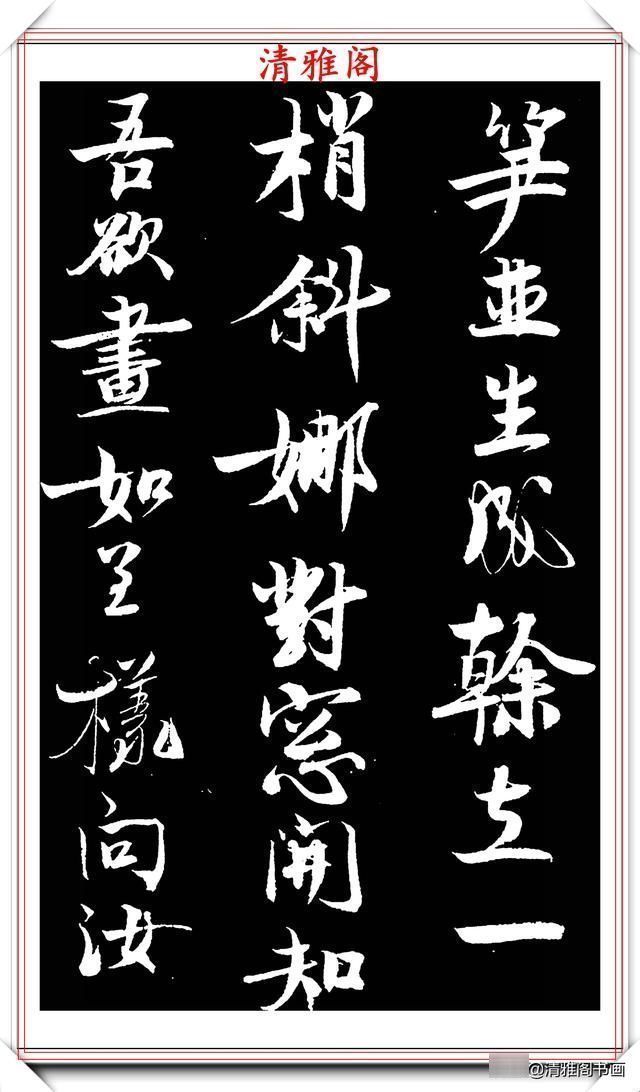 清雅阁
笋並生成幹立一
梢斜娜對窓開知
吾欲畫如呈樣向汝
@清雅阁书画